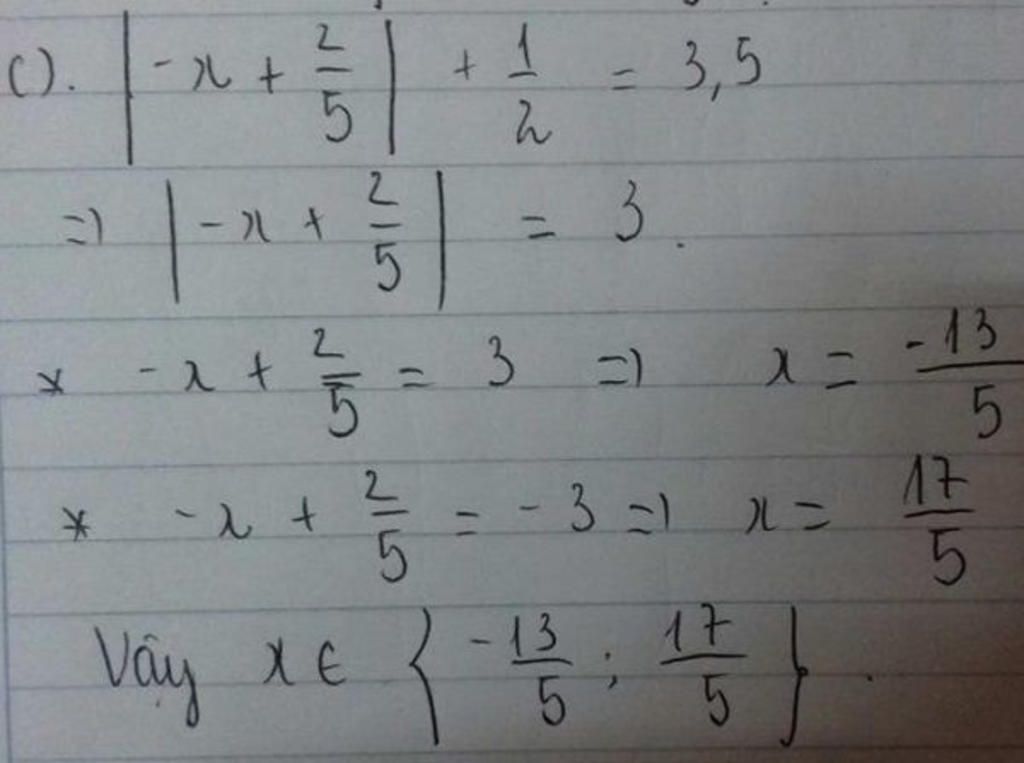 c). |-x + 2/5| + 1/2 = 3,5
=> |-x + 2/5| = 3.
* -x + 2/5 = 3 => x = -13/5
* -x + 2/5 = -3 => x = 17/5
Vậy x ∈ {-13/5 ; 17/5}.